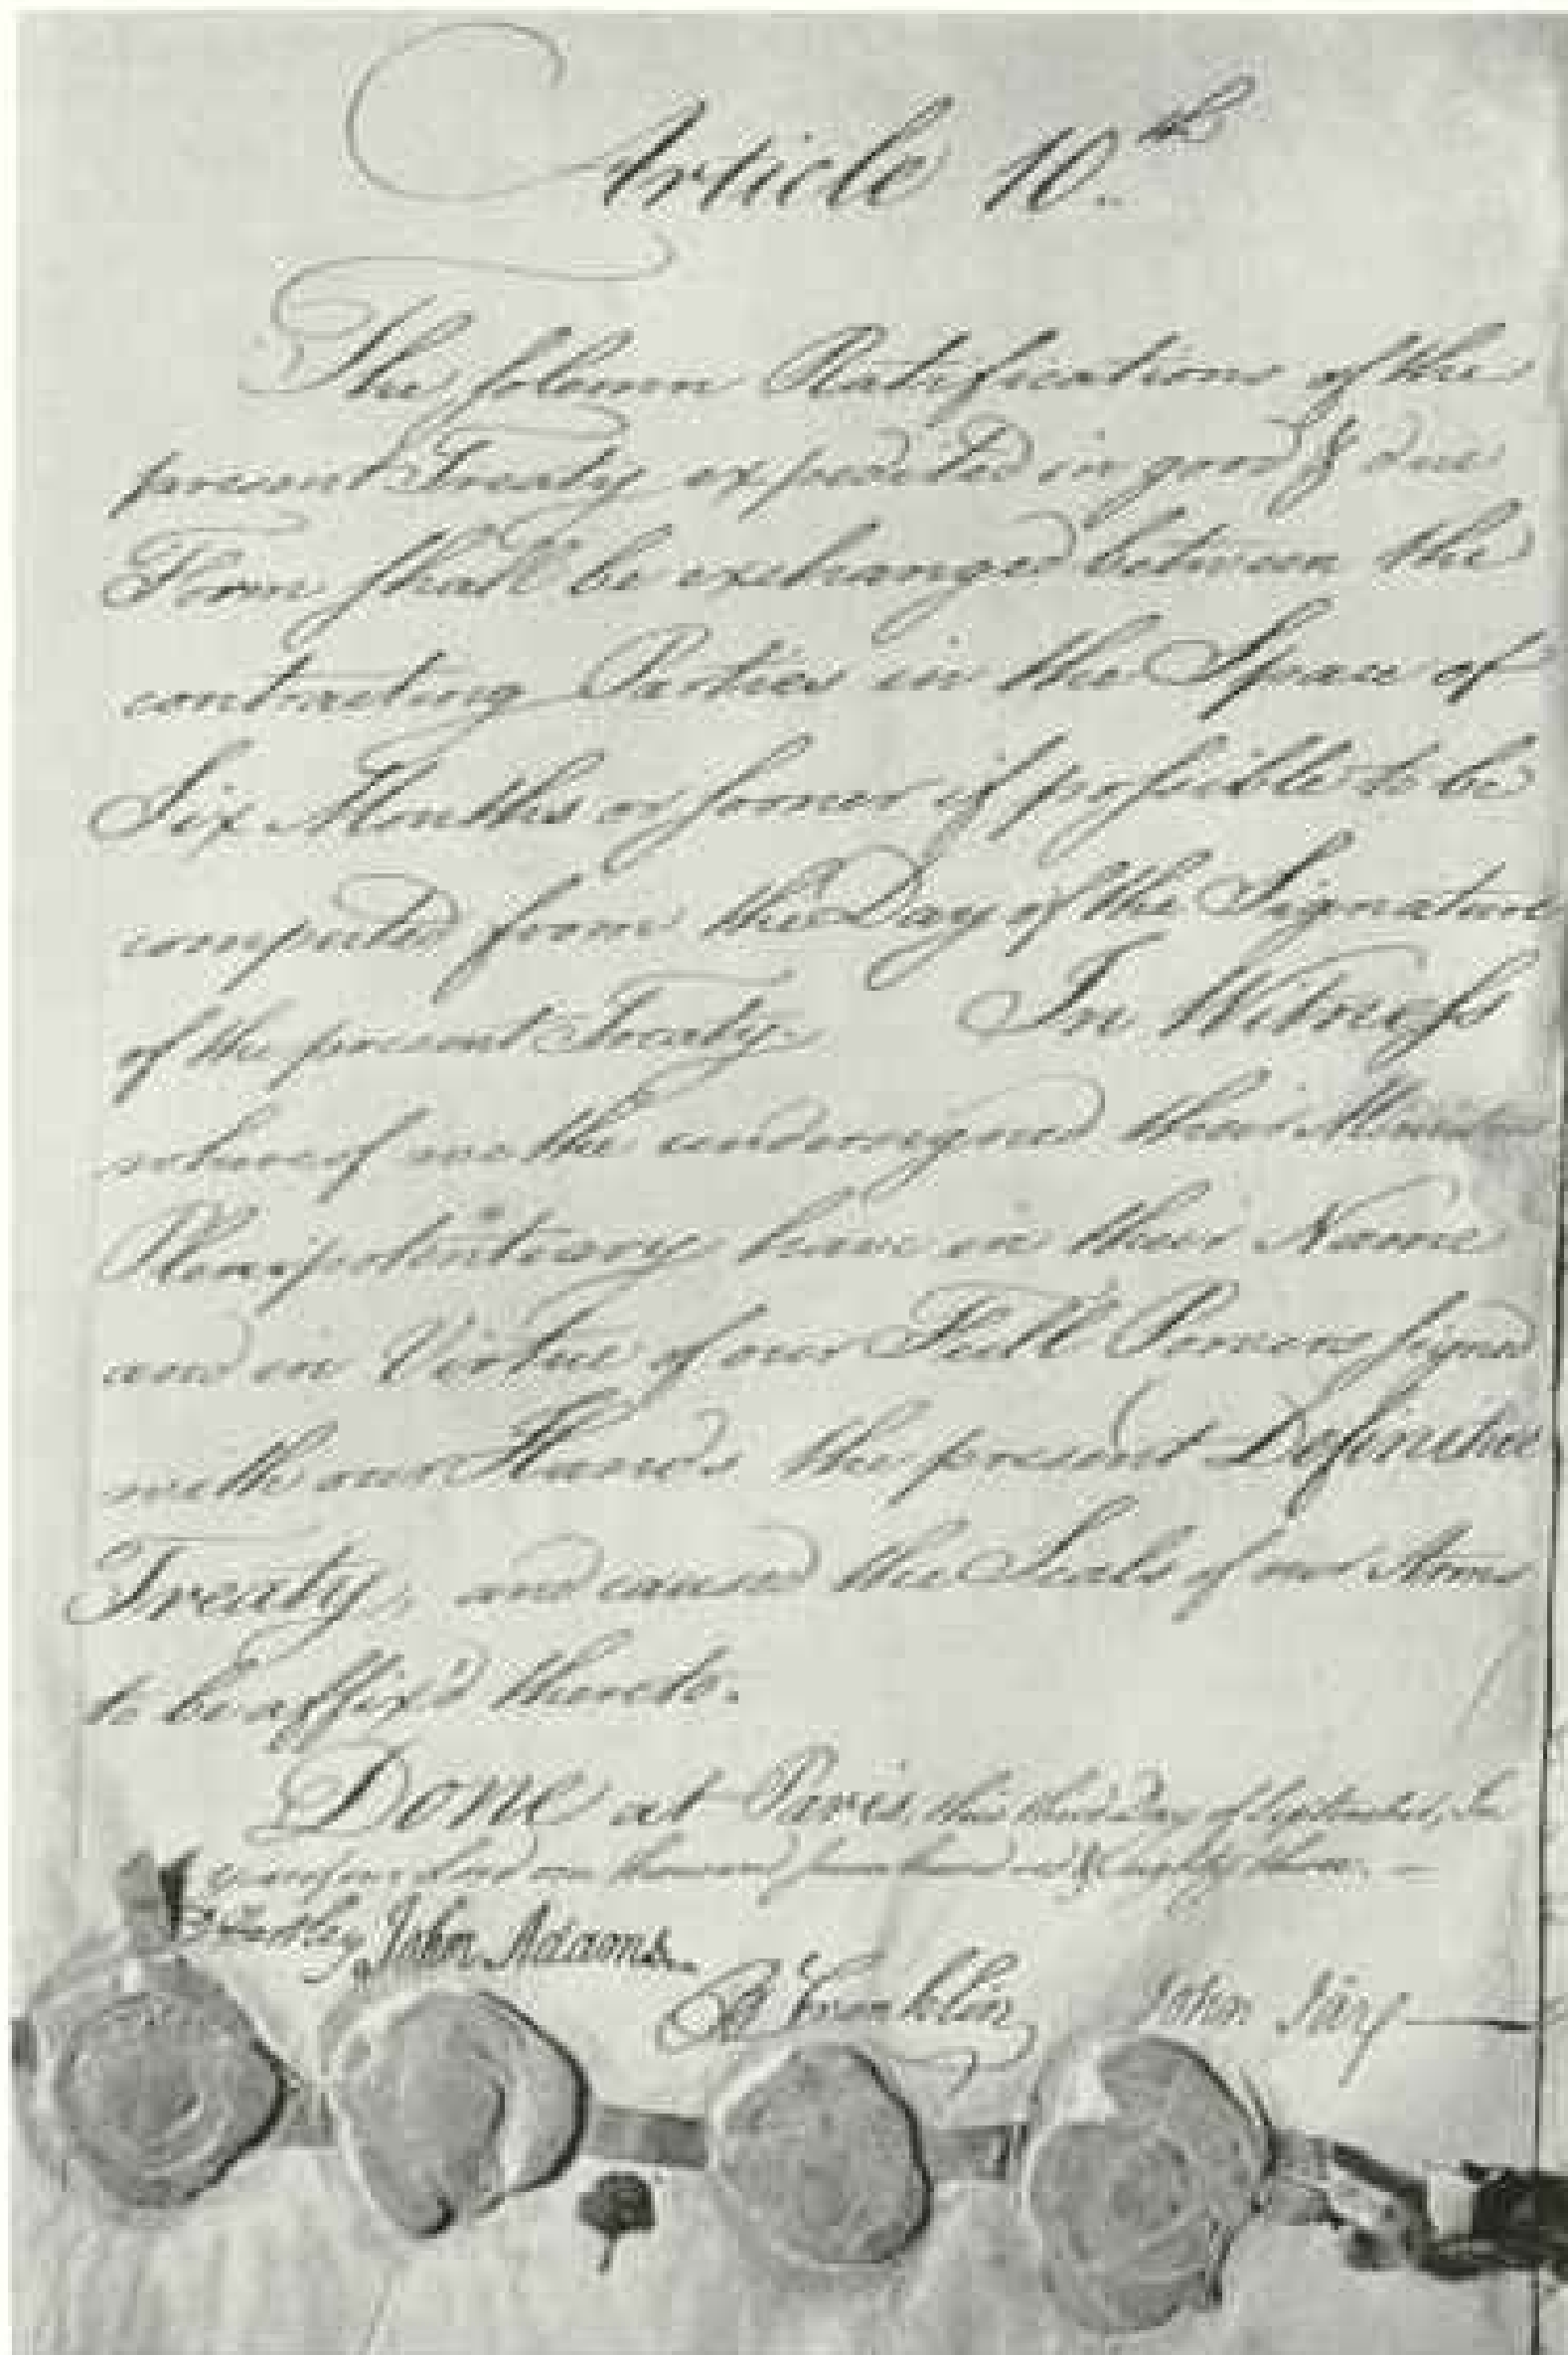 Article 10.th
The solemn Ratifications of the
present Treaty expedited in good & due
Form shall be exchanged between the
contracting Parties in the Space of
Six Months or sooner if possible to be
computed from the Day of the Signature
of the present Treaty. In Witness
whereof we the undersigned their Ministers
Plenipotentiary have in their Name
and in Virtue of our Full Powers signed
with our Hands the present Definitive
Treaty, and caused the Seals of our Arms
to be affix'd thereto.
Done at Paris, this third Day of September, In
year of our Lord one thousand seven hundred & eighty three.
D Hartley John Adams.
B Franklin John Jay